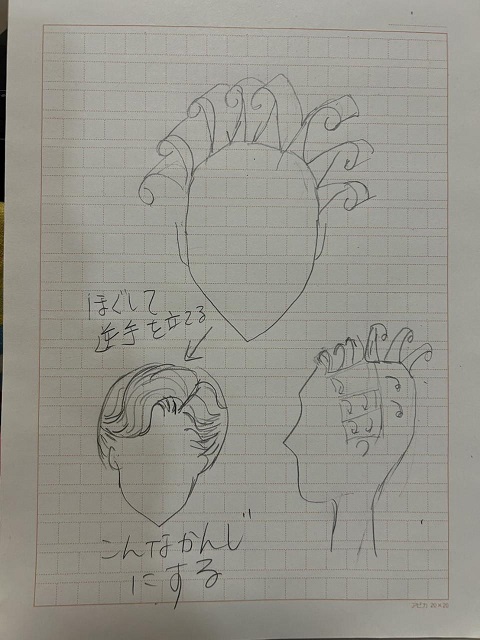 ほぐして
逆手を立てる
こんなかんじ
にする